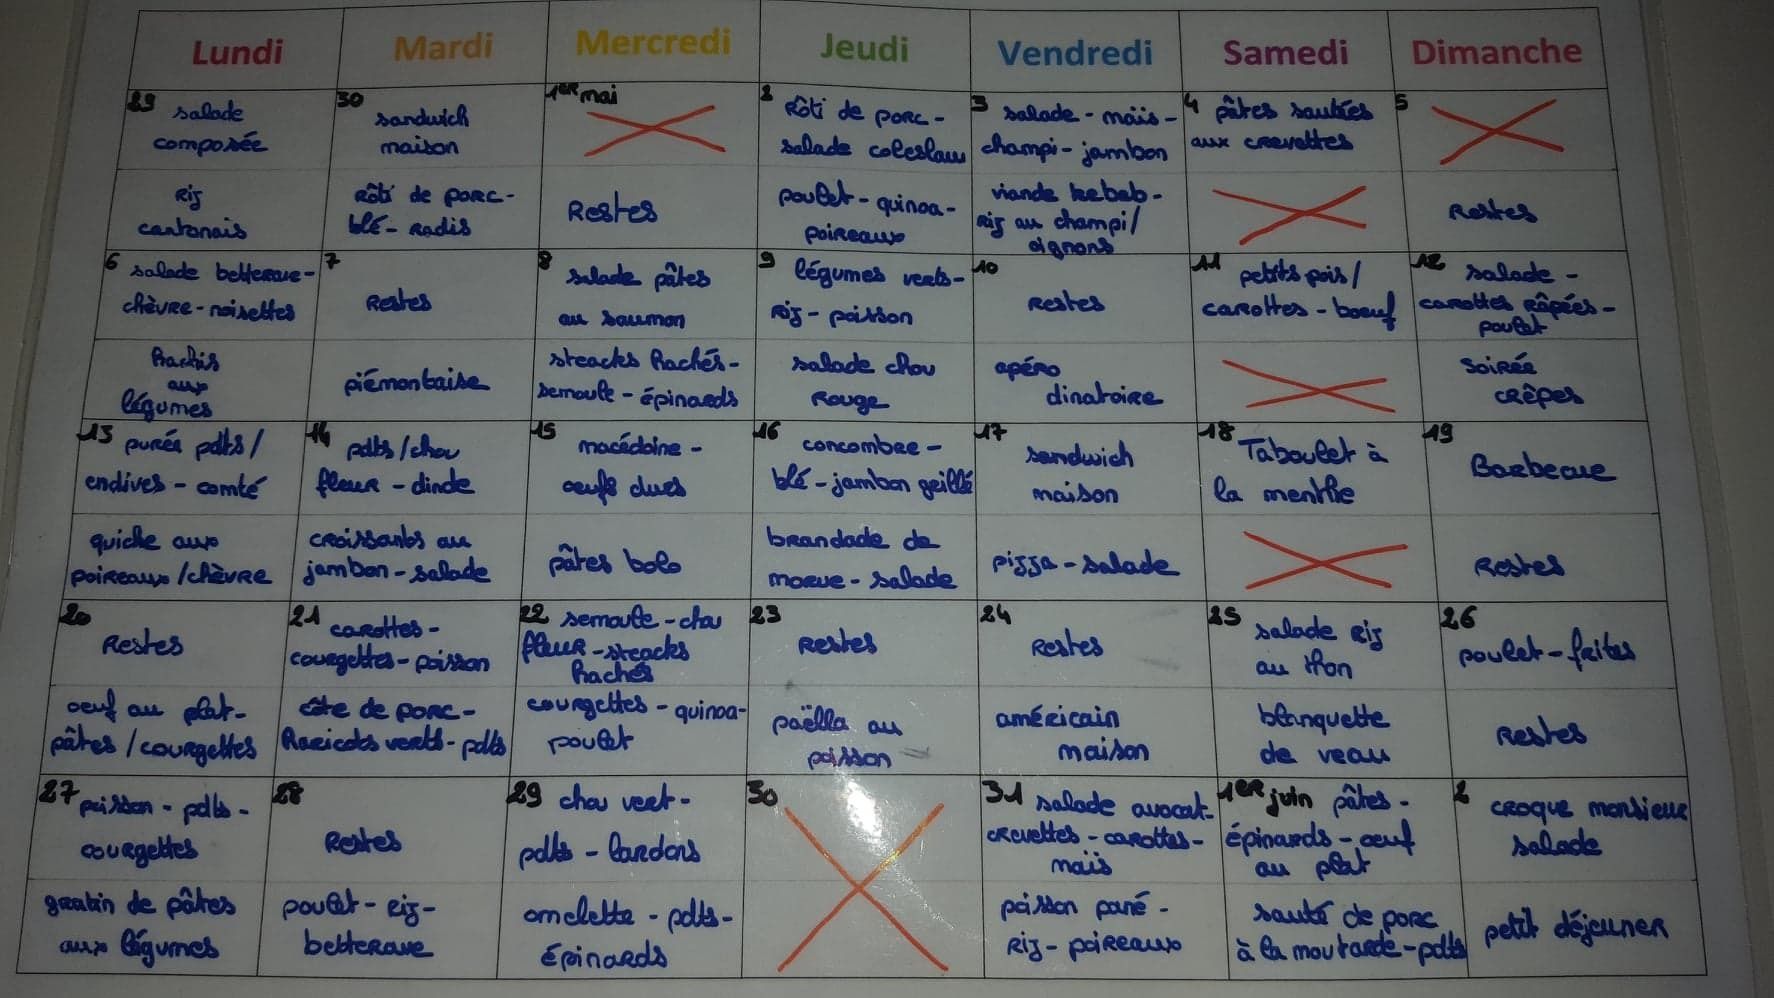 Lundi Mardi Mercredi Jeudi Vendredi Samedi Dimanche
29 salade
composée
30 sandwich
maison
1ER mai
2 Rôti de porc -
salade coleslaw
3 salade - maïs -
champi - jambon
4 pâtes sautées
aux crevettes
5
Riz
cantonais
Rôti de porc -
blé - Radis
Restes
poulet - quinoa -
poireaux
viande kebab -
Riz au champi/
oignons
Restes
6 salade betterave -
chèvre - noisettes
7
Restes
8
salade pâtes
au saumon
9 légumes verts -
Riz - poisson
10
Restes
11 petits pois /
carottes - boeuf
12 salade -
carottes Râpées -
poulet
Hachis
aux
légumes
piémontaise
steacks hachés -
semoule - épinards
salade chou
Rouge
apéro
dinatoire
Soirée
crêpes
13 purée pdts /
endives - comté
14 pdts / chou
fleur - dinde
15 macédoine -
oeufs durs
16 concombre -
blé - jambon grillé
17 sandwich
maison
18 Taboulet à
la menthe
19
Barbecue
quiche aux
poireaux / chèvre
croissants au
jambon - salade
pâtes bolo
brandade de
morue - salade
pizza - salade
Restes
20
Restes
21 carottes -
courgettes - poisson
22 semoule - chou
fleur - steacks
hachés
23
Restes
24
Restes
25 salade Riz
au thon
26
poulet - frites
oeuf au plat -
pâtes / courgettes
côte de porc -
Haricots verts - pdts
courgettes - quinoa -
poulet
paëlla au
poisson
américain
maison
blanquette
de veau
Restes
27 poisson - pdts -
courgettes
28
Restes
29 chou vert -
pdts - lardons
30
31 salade avocat -
crevettes - carottes -
maïs
1ER juin pâtes -
épinards - oeuf
au plat
2 croque monsieur
salade
gratin de pâtes
aux légumes
poulet - Riz -
betterave
omelette - pdts -
Épinards
poisson pané -
Riz - poireaux
sauté de porc
à la moutarde - pdts
petit déjeuner